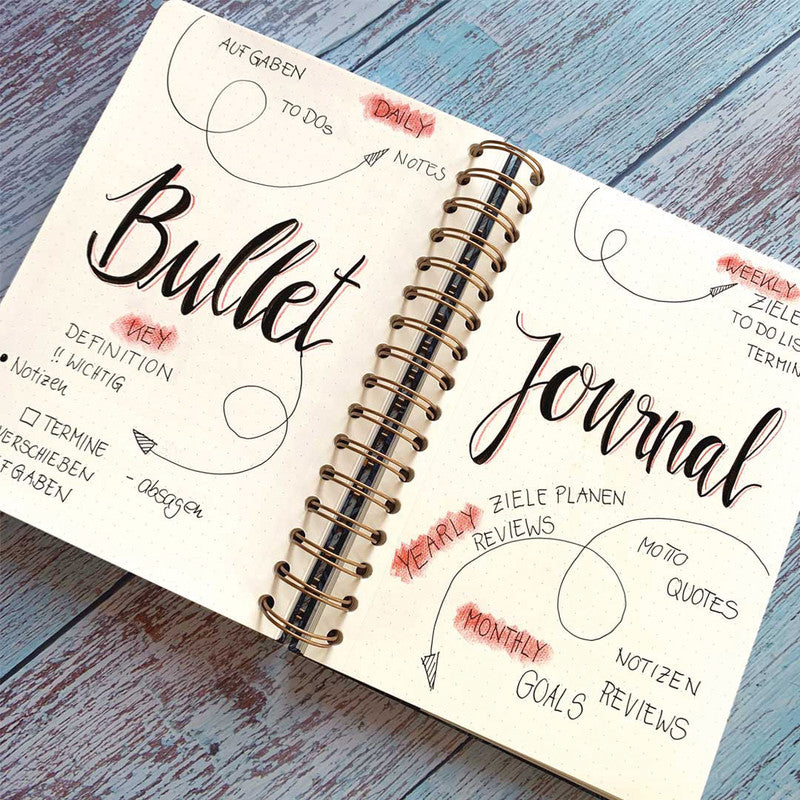 AUFGABEN
TO DOs
DAILY
NOTES
Bullet
KEY
DEFINITION
!! WICHTIG
• Notizen
☐ TERMINE
VERSCHIEBEN
- absagen
WEEKLY
ZIELE
TO DO LIS
TERMIN
Journal
YEARLY
ZIELE PLANEN
REVIEWS
MOTTO
QUOTES
MONTHLY
GOALS
NOTIZEN
REVIEWS